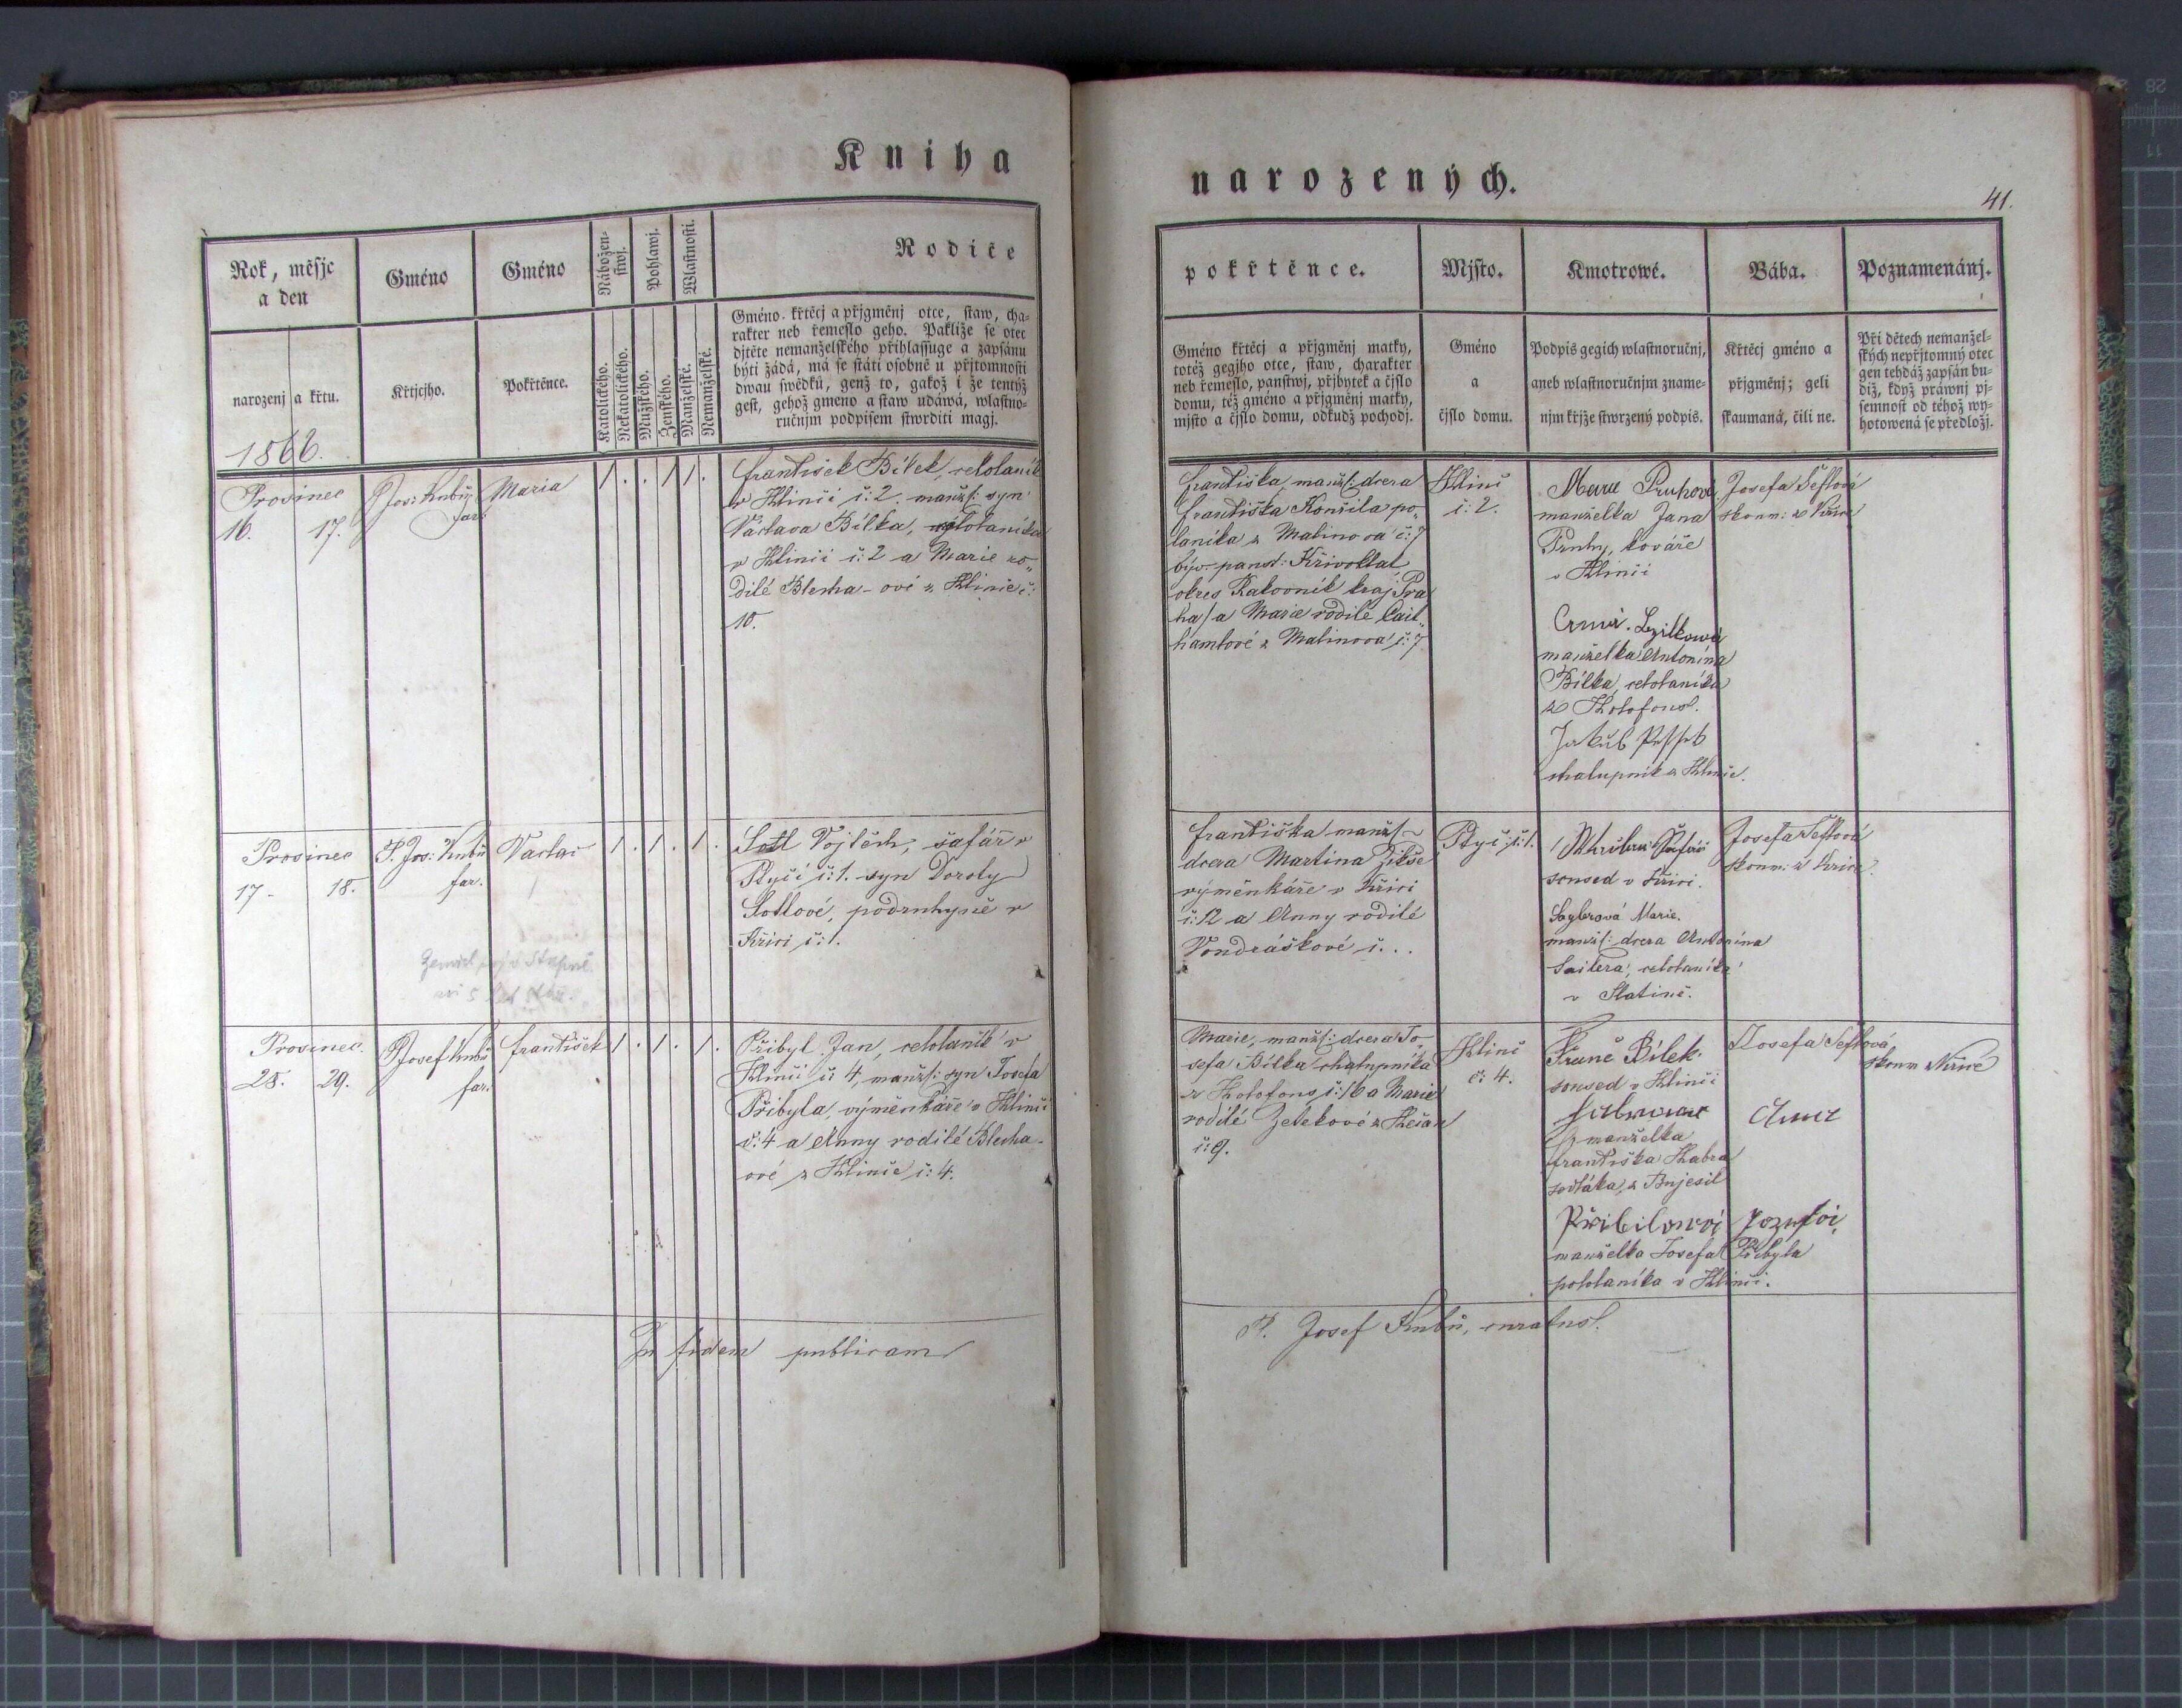 Kniha
narozených.
41.
Rok, měsjc
a den
narozenj a křtu.
1866.
Gméno
Křtjcjho.
Gméno
Pokřtěnce.
Nábožen-
stwj.
Katolického.
Nekatolického.
Pohlawj.
Mužského.
Ženského.
Wlastnosti.
Manželské.
Nemanželské.
Rodiče
Gméno křtěcj a přjgměnj otce, staw, cha-
rakter neb řemeslo geho. Pakliže se otec
djtěte nemanželského přihlassuge a zapsánu
býti žádá, má se státi osobně u přjtomnosti
dwau swědků, genž to, gakož i že tentýž
gest, gehož gmeno a staw udáwá, wlastno-
ručnjm podpisem stwrditi magj.
pokřtěnce.
Gméno křtěcj a přjgměnj matky,
totéž gegjho otce, staw, charakter
neb řemeslo, panstwj, přjbytek a čjslo
domu, též gméno a přjgměnj matky,
mjsto a čjslo domu, odkudž pochodj.
Mjsto.
Gméno
a
čjslo domu.
Kmotrowé.
Podpis gegich wlastnoručnj,
aneb wlastnoručnjm zname-
njm křjže stwrzený podpis.
Bába.
Křtěcj gméno a
přjgměnj; geli
skaumaná, čili ne.
Poznamenánj.
Při dětech nemanžel-
ských nepřjtomný otec
gen tehdáž zapsán bu-
diž, když práwnj pj-
semnost od téhož wy-
hotowená se předložj.
Prosinec
16. 17.
P Jos: Kubů
far.
Maria
1 . . 1 1 .
František Bílek, celoláník
v Hlinči č: 2, manžs: syn
Václava Bílka, celoláníka
v Hlinči č: 2 a Marie ro-
dilé Blecha-ové z Hlinče č:
10.
Františka, manžs: dcera
Františka Konšila po-
laníka z Malinova č: 7
býv. panst: Křivoklat
okres Rakovník kraj Pra
ha/ a Marie rodilé Cail-
hamlové z Malinova č: 7
Hlinč
č: 2.
Marie Pruhová
manželka Jana
Pruhy, kováře
v Hlinči
manželka Antonína
Bílka, celoláníka
z Holofous.
Jakub
chalupník z Hlinče.
Josefa Šeflová
zkoum: z Křice
Prosinec
17 - 18.
P. Jos: Kubů
far.
Václav
1 . 1 . 1 .
Sotl Vojtěch, šafář v
Ptyči č: 1. syn Doroty
Sotlové, podruhyně v
Křici č: 1.
Františka manžs-
dcera Martina Zikše
výměnkáře v Křici
č: 12 a Anny rodilé
Vondráškové č. . .
Ptyč č: 1.
soused v Křici.
Saylerová Marie.
manžs: dcera Antonína
Sailera, celoláníka
v Slatině.
Josefa Šeflová
zkoum: z Křice
Prosinec.
28. 29.
P Josef Kubů
far.
František
1 . 1 . 1 .
Přibyl Jan, celoláník v
Hlinči č: 4, manžs: syn Josefa
Přibyla, výměnkáře v Hlinči
č: 4 a Anny rodilé Blecha-
ové z Hlinče č: 4.
Marie, manžs: dcera Jo-
sefa Bílka chalupníka
z Holofous č: 16 a Marie
rodilé Zelekové z
č: 9.
Hlinč
č: 4.
Bílek
soused v Hlinči
manželka
Františka Habra
sedláka, z Bujesil
Přibilowá Jozefa
manželka Josefa Přibyla
pololaníka v Hlinči.
Josefa Šeflová
zkoum Křice
In fidem publicam
P. Josef Kubů, curatus.